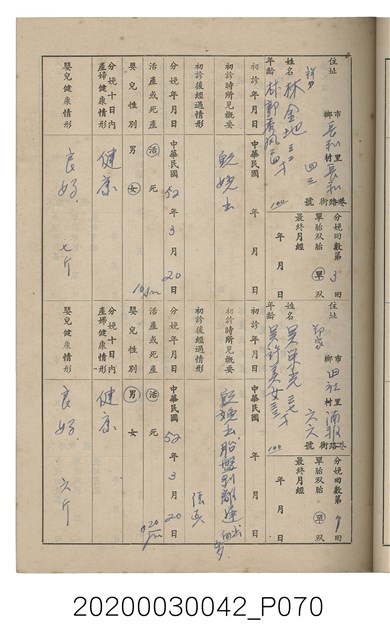 住址 市鄉 長和 里村 長和 路街巷 四三 號
姓名 林金地 三二
年齡 林郭秀鳳 四十
分娩回數第 3 回
單胎双胎 單
最終月經 年 月 日
初診年月日 年 月 日
初診時所見概要 已娩出
初診後經過情形
分娩年月日 中華民國 52 年 3 月 20 日
活產或死產 活 死
嬰兒性別 男 女
分娩十日內產婦健康情形 健康
嬰兒健康情形 良好 七斤
住址 市鄉 里村 路街巷 六六 號
姓名
年齡 吳許美女
分娩回數第 回
單胎双胎 單
最終月經 年 月 日
初診年月日 年 月 日
初診時所見概要 已娩出 胎盤剥離
初診後經過情形
分娩年月日 中華民國 52 年 3 月 20 日
活產或死產 活 死
嬰兒性別 男 女
分娩十日內產婦健康情形 健康
嬰兒健康情形 良好 六斤
20200030042_P070